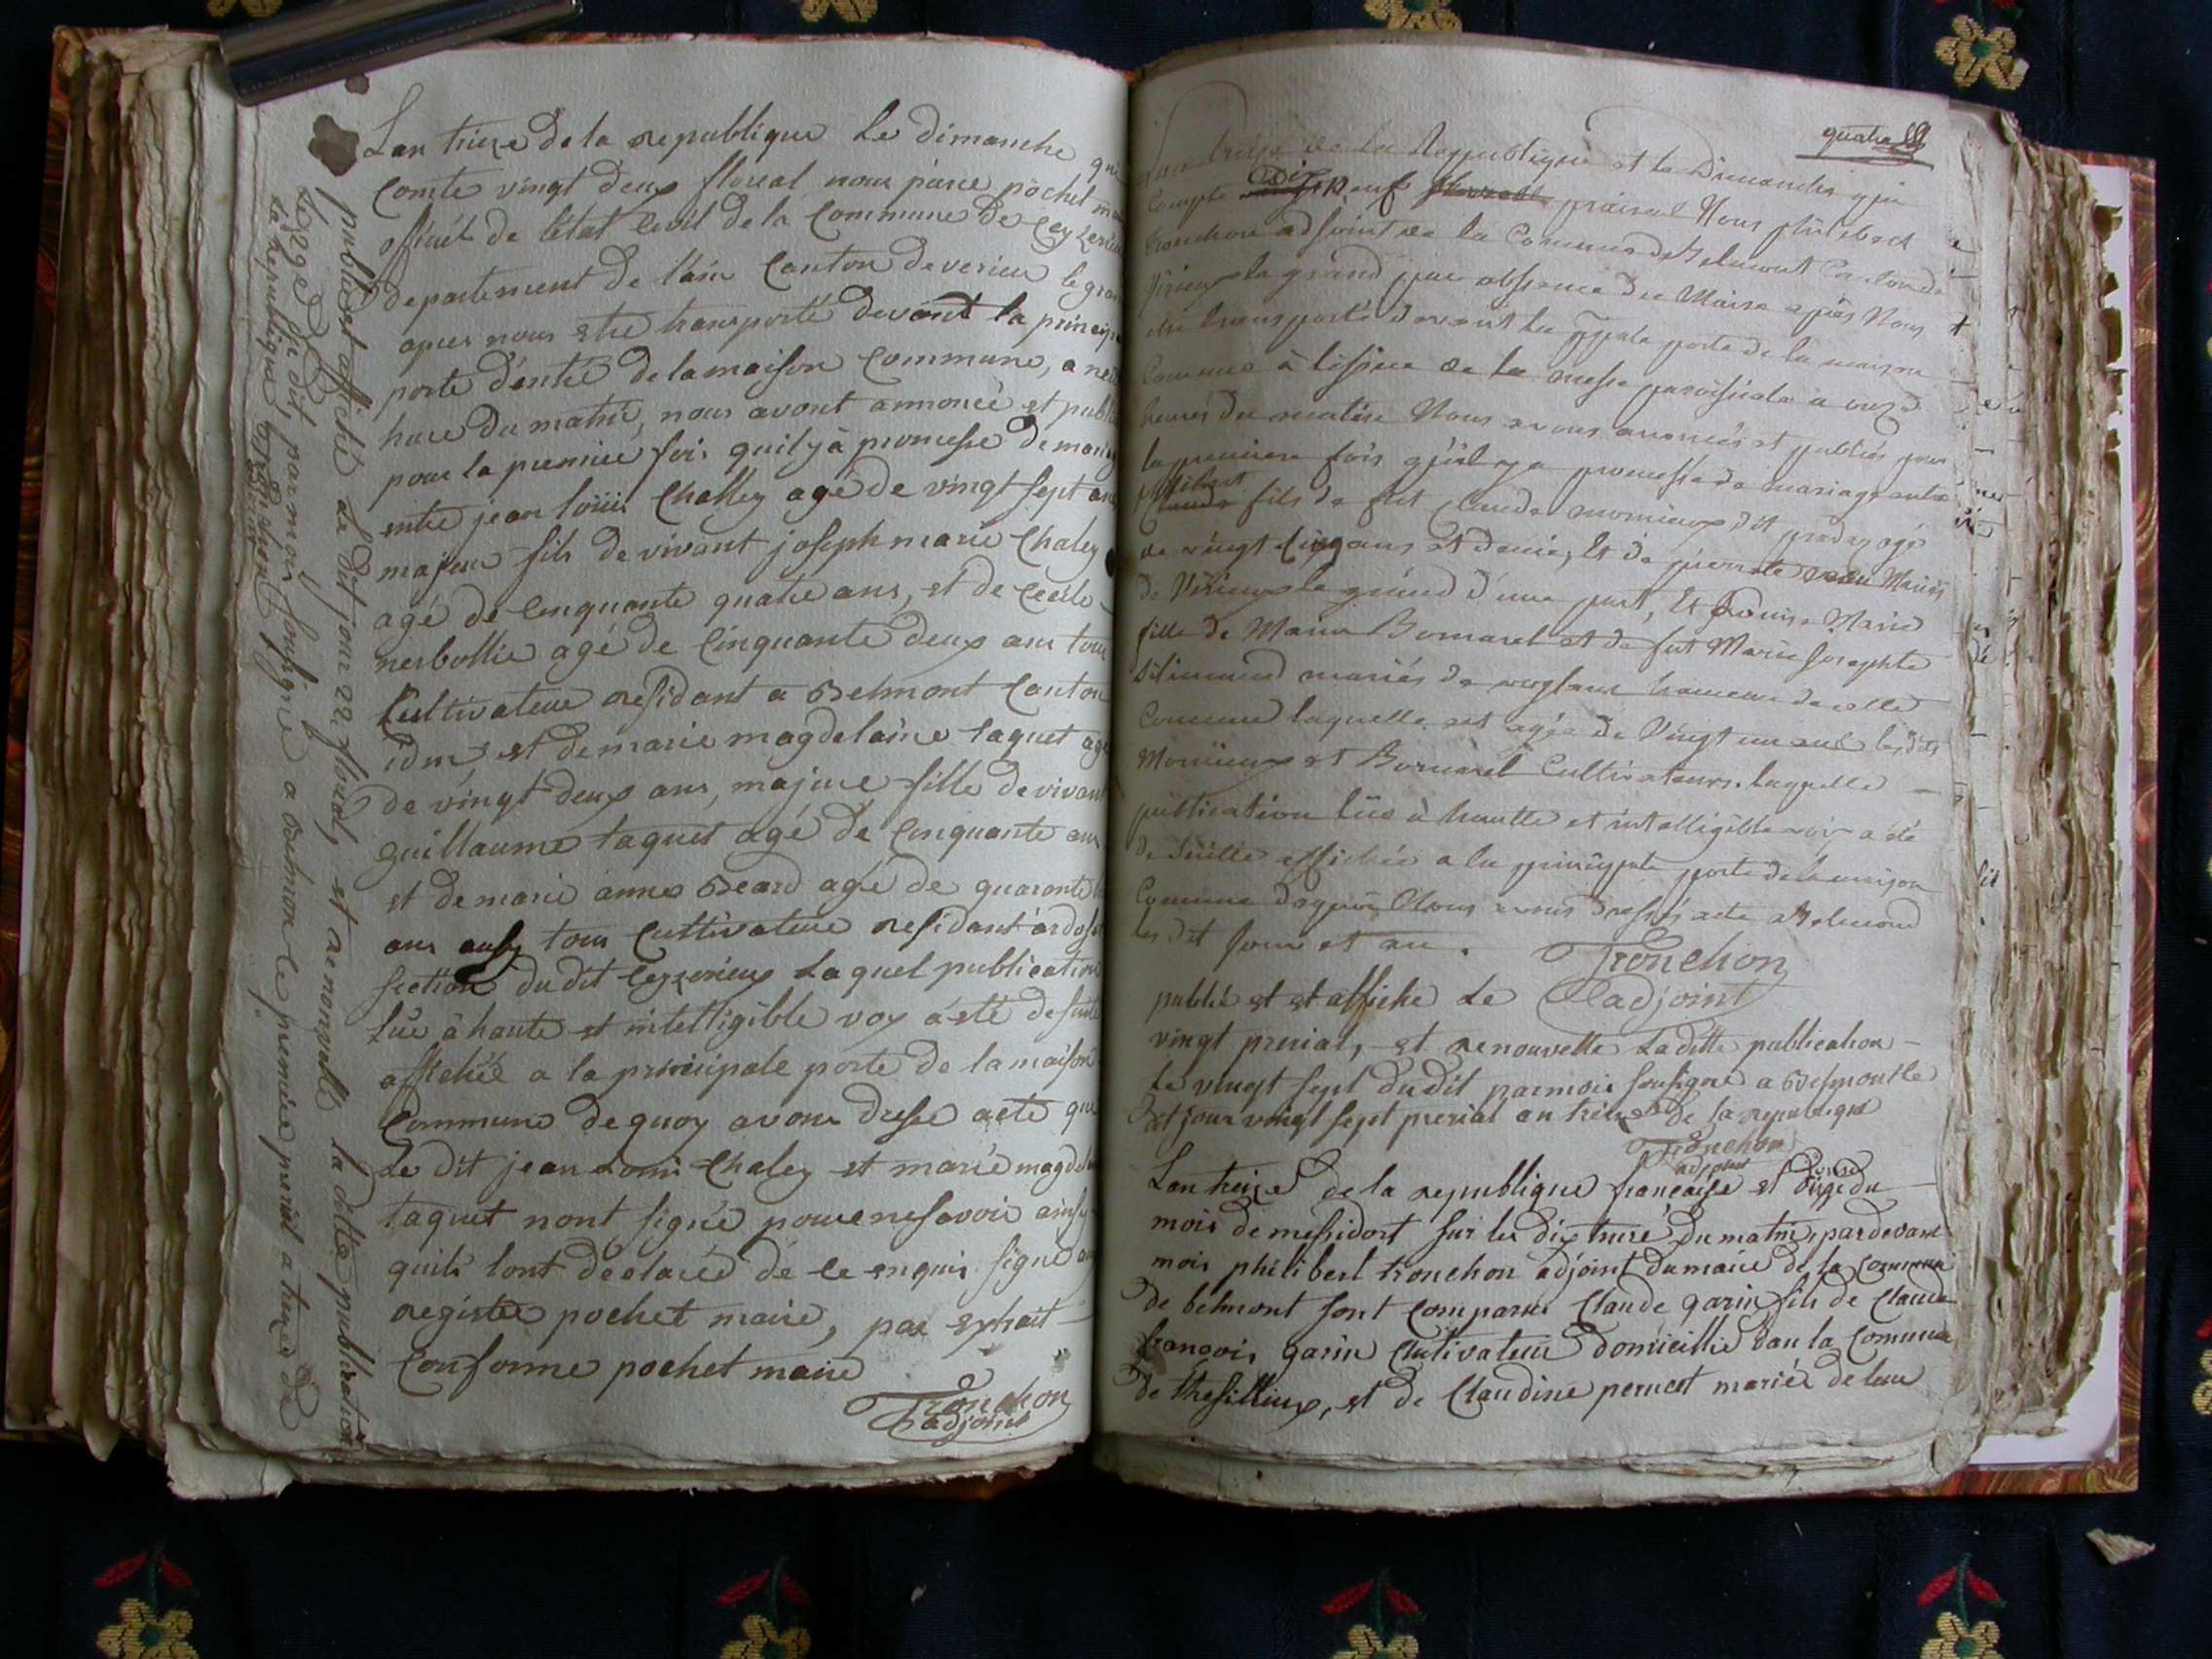 Lan treize de la republique Le dimanche qui
Comte vingt deux floreal nous pierre pochet
officiét de létat Civil de la Commune de Ceyzerieu
departement de lain Canton de verieu le gran
apres nous etre transporté devant la principa
porte déntré de la maison Commune, a neuf
hure du matin, nous avont annoncé et publi
pour la premiere fois quil y à promesse de mariag
entre jean louis Challey agé de vingt sept ans
majeur fils de vivant joseph marie Chaley
agé de Cinquante quatre ans, et de Cecile
nerbollie agé de Cinquante deux ans tous
Cultivateur residant a Belmont Canton
idm et de marie magdelaine taquet agé
de vingt deux ans, majeure fille de vivant
guillaume taquet agé de Cinquante ans
et de marie anne Beard agé de quarante
ans tous Cultivateur residant
section du dit Ceyzerieux Laquel publication
lue à haute et intelligible voy à eté de suite
affichée a la principale porte de la maison
Commune de quoy avons dressé acte que
Le dit jean Louis Chaley et marie magdel
taquet nont signé pour ne savoir ainsy
quils lont déclaréd de ce enquis signé au
registre pochet maire, par extrait
Conforme pochet maire
Tronchon
adjoint
publié et affiché Le dit jour 22 floreal, et renouvallé la ditte publication
Le 29 du dit par moi soubsigné a Belmon le premier prerial a treize de
la republique Tronchon
adjoint
quatre
Lan treize de la Republique et le Dimanche qui
Compte dix neuf prairial Nous philibert
tronchon adjoint de la Commune de Belmont Canton de
Virieux le grand pour absence du Maire apres Nous
etre transporté devant la pple porte de la maison
Commune à lissue de la messe paroissiale à onze
heures du matin Nous avons annoncés et publiés pour
la premiere fois qu'il y a promesse de mariage entre
philibert
fils de fut Claude monnieux dit
de vingt Cinq ans et demie, Et de pierrete Mariés
de Virieux le grand d'une part, Et Louise Marie
fille de Marin Bornarel et de fut Marie Josephte
mariés de hameau de celle
Commune laquelle est agée de Vingt un ans les dits
Monnieux et Bornarel Cultivateurs. laquelle
publication lüe à hautte et intelligible voix a été
de Suitte affichée a la principale porte de la maison
Commune Daquoi Nous avons dressés acte a Belmond
les dit jour et an. Tronchon
publié et et affiche Le adjoint
vingt prerial, et renouvelle La ditte publication
Le vingt sept du dit par moi sousigné a Belmont le
dit jour vingt sept prerial an treize de la republique
Tronchon
adjoint
Lan treize de la republique française et onze du
mois de messidort sur les dix hure du matin, pardevant
moi philibert tronchon adjoint du maire de la Commune
de belmont sont Comparus Claude garin fils de Claude
françois garin Cultivateur domicillié dans la Commune
de thesillieux, et de Claudine perucet mariés de leur